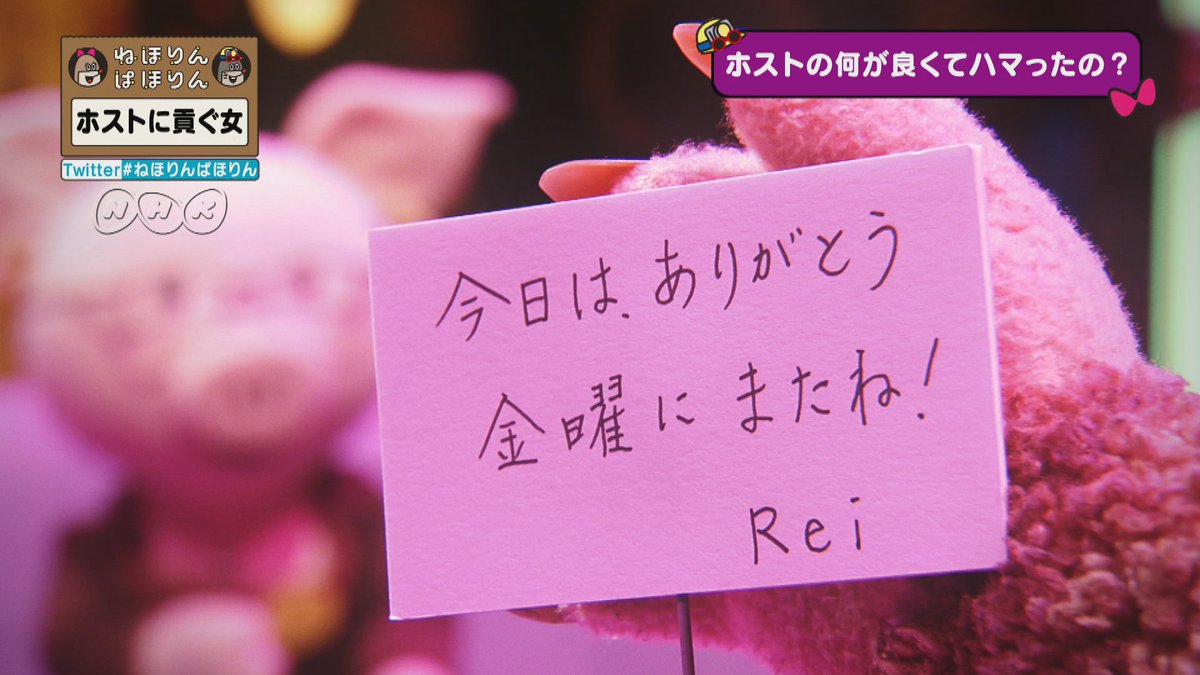 ねほりん
ぱほりん
ホストに貢ぐ女
Twitter#ねほりんぱほりん
NHK
ホストの何が良くてハマったの？
今日は、ありがとう
金曜にまたね！
Rei